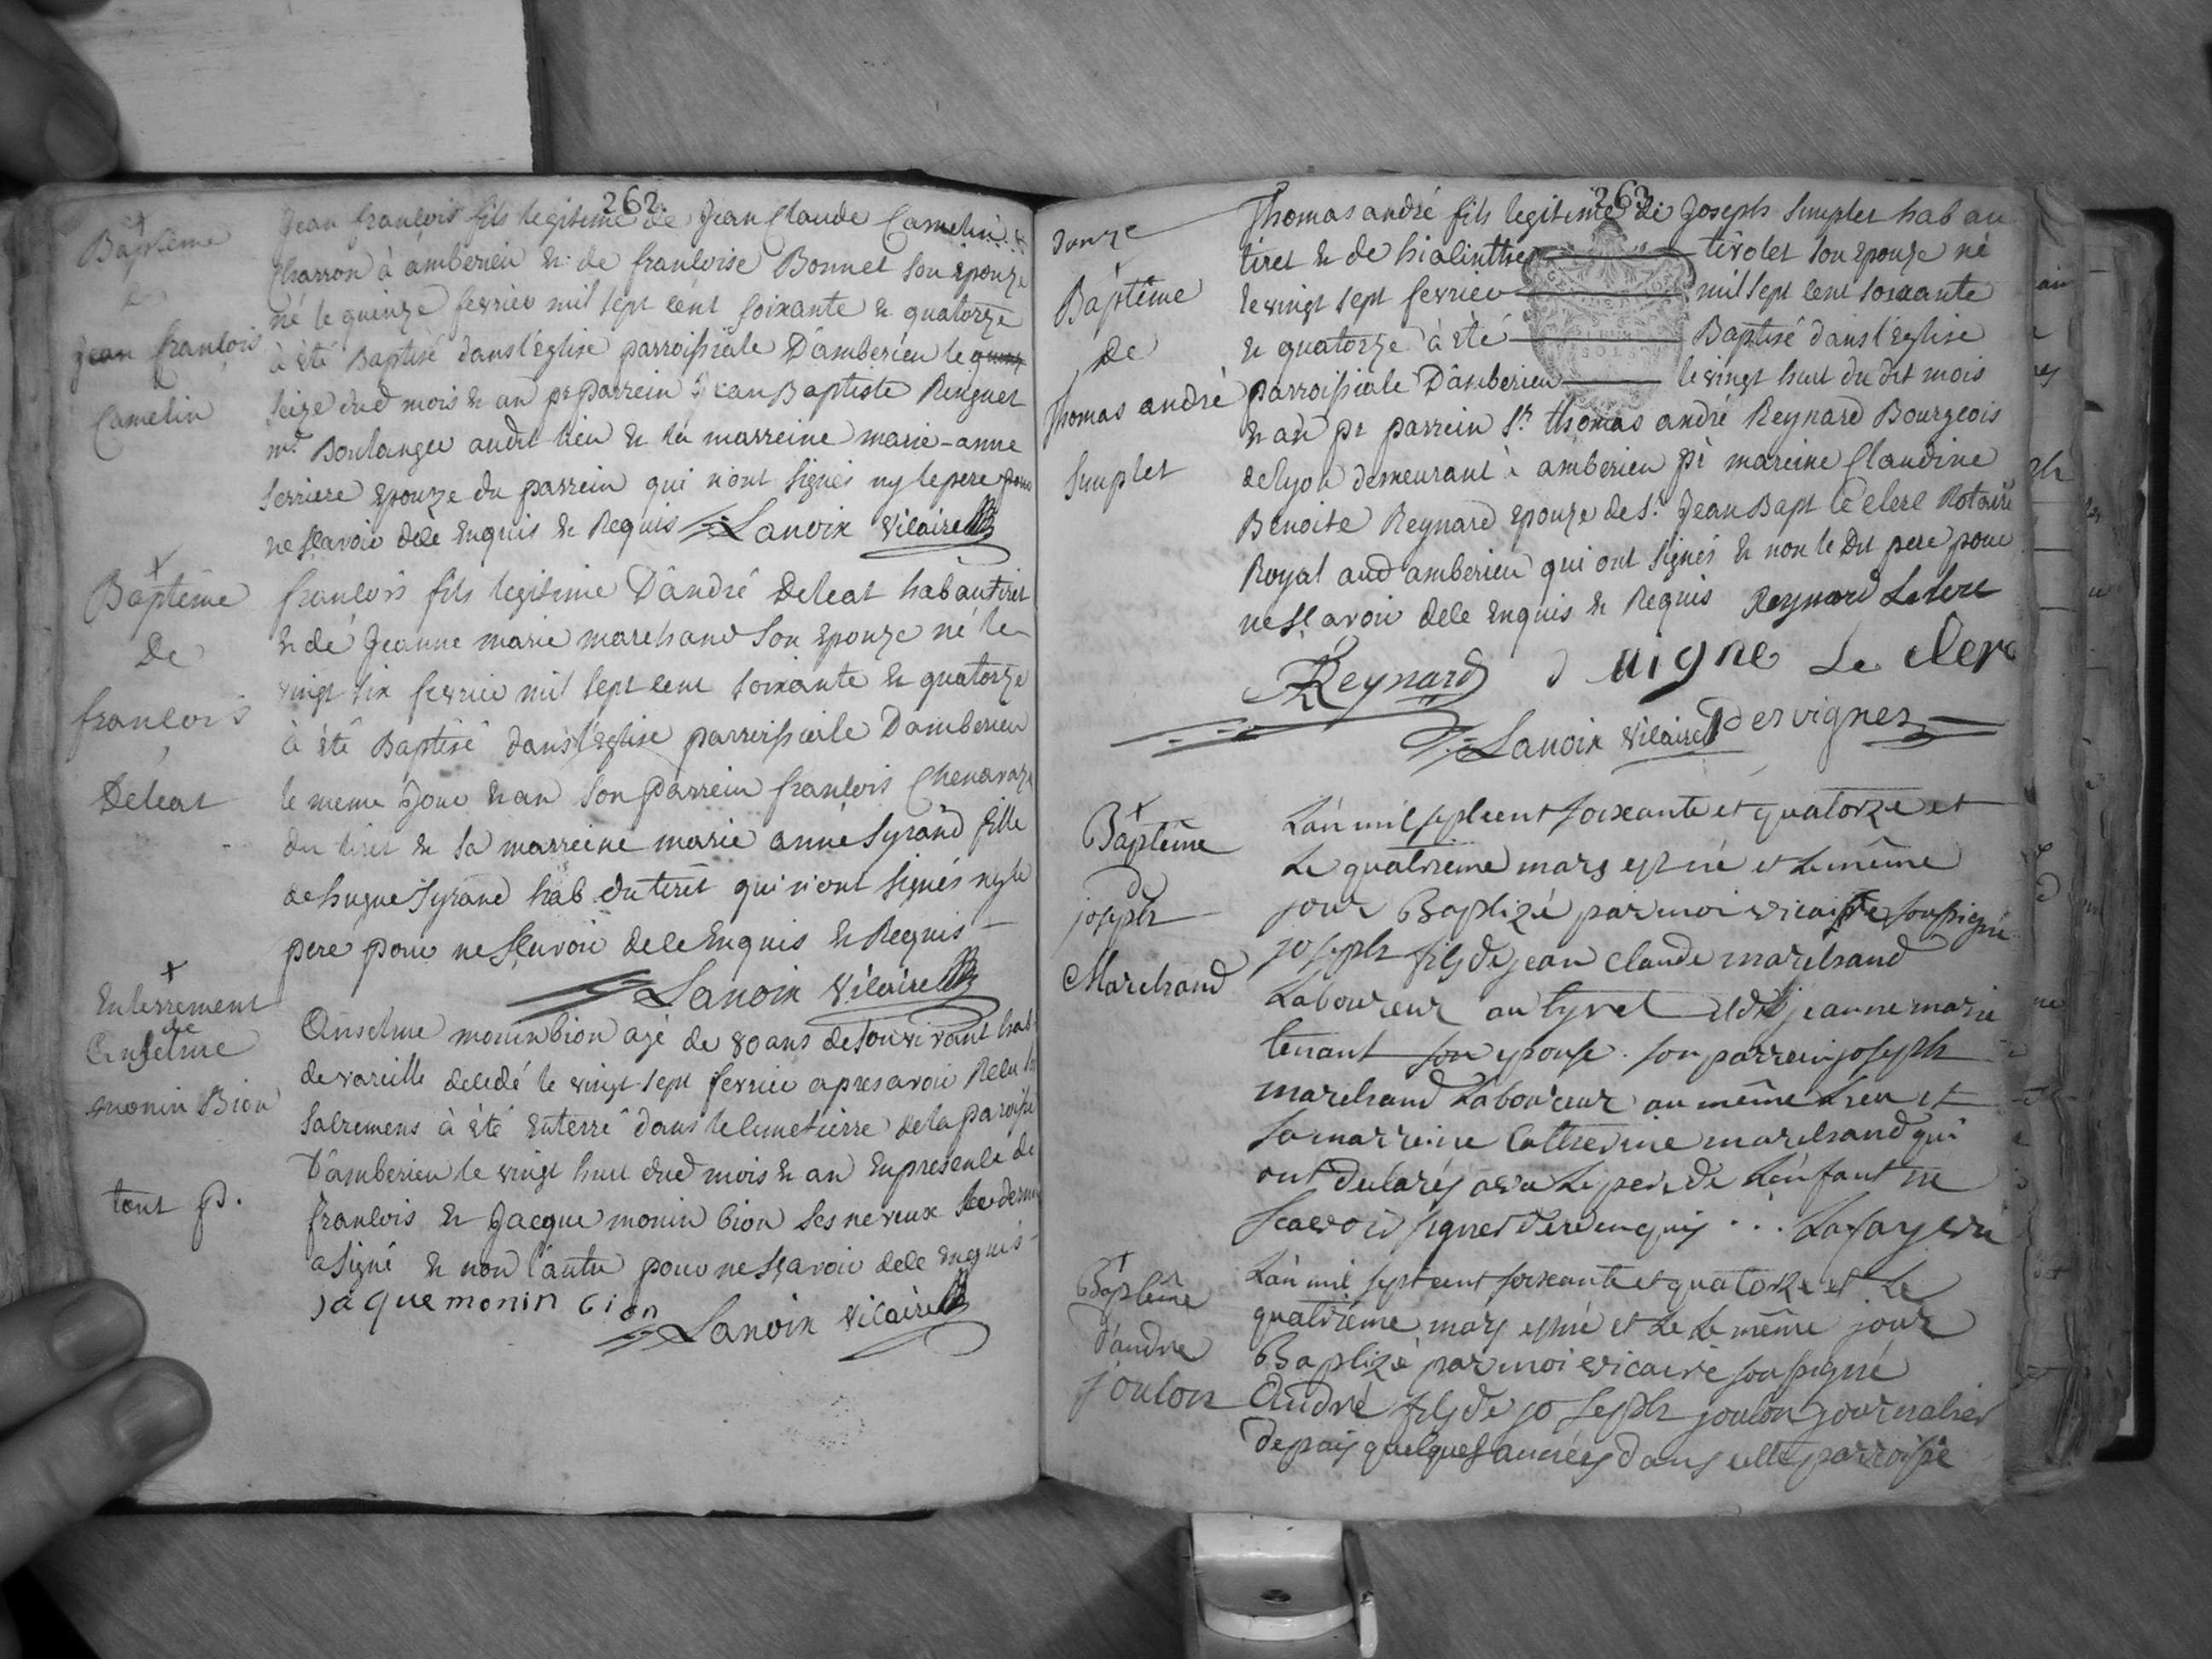 262.
Baptême
de
Jean françois
Camelin
Jean françois fils legitime de Jean Claude Camelin
Charron à amberieu & de francoise Bonnet son epouze
né le quinze fevrier mil sept cent soixante & quatorze
à été Baptisé dans l'Eglise parroissiale D'amberieu le
seize dud mois & an pr parrein Jean Baptiste Ringuet
md. Boulanger audit lieu & la marreine marie-anne
serriere epouze du parrein qui n'ont signés ny le pere pour
ne sçavoir dele enquis & Requis Lanoix vicaire
Baptême
De
françois
Deleat
françois fils legitime D'andré Deleat hab au tiret
& de Jeanne marie marchand son epouze né le
vingt six fevrier mil sept cent soixante & quatorze
à été Baptisé dans l'Eglise parroissiale D'amberieu
le meme Jour & an son parrein françois Chenavaz
du tiret & sa marreine marie anne Syrand fille
de hugue Syrand hab du tiret qui n'ont signés ny le
pere pour ne sçavoir dele Enquis & Requis
Lanoix vicaire
Enterrement
de
Anselme
monin Bion
tout p.
Anselme monin bion agé de 80 ans de son vivant hab
de vareille decedé le vingt sept fevrier apres avoir Recu les
sacremens à été Enterré dans le cimetierre de la paroisse
D'amberieu le vingt huit dud mois & an En presence de
françois & Jacque monin bion ses neveux
a signé & non l'autre pour ne sçavoir dele enquis
jaque monin bion
Lanoix vicaire
263.
Baptême
De
Thomas andré
Simplet
Thomas andré fils legitime de Joseph Simplet hab au
tiret & de hiacinthe tivolet son epouze né
le vingt sept fevrier mil sept cent soixante
& quatorze à été Baptisé dans l'Eglise
parroissiale D'amberieu le vingt huit du dit mois
& an pr parrein Sr. thomas andré Reynard Bourgeois
de lyon demeurant à amberieu pr mareine Claudine
Benoite Reynard epouze de Sr. Jean Bapt le clerc Notaire
Royal aud amberieu qui ont signés & non le Dit pere pour
ne sçavoir dele enquis & Requis Reynard Leclerc
Reynard d uigne Le clerc
Lanoix vicaire Desvignes
Baptême
de
joseph
Marchand
L'an mil sept cent soixante et quatorze et
Le quatrieme mars est né et Le même
jour Baptizé par moi vicaire soussigné
joseph fils de jean claude marchand
Laboureur au tyret et de jeanne marie
tenant son epouse. son parrein joseph
marchand Laboureur au même Lieu et
sa marreine Catherine marchand qui
ont declarés avec Le pere de L'enfant ne
scavoir signer dere enquis ... Lafay vic
Baptême
d'andre
joulon
L'an mil sept cent soixante et quatorze et Le
quatrieme mars est né et Le Le même jour
Baptizé par moi vicaire soussigné
André fils de joseph joulon journalier
depuis quelques années dans cette parroisse